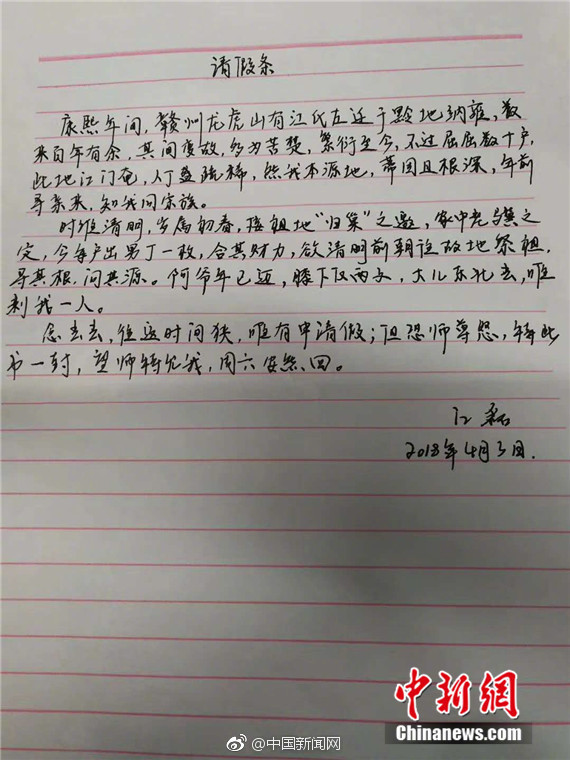 请假条
康熙年间，赣州龙虎山有江氏左迁于黔地纳雍，数
来百年有余，其间变故，多为苦楚，繁衍至今，不过屈屈数十户，
此地江门奄，人丁益疏稀，然我本源地，蒂固且根深，年前
寻亲来，知我同宗族。
时维清明，岁属初春，接祖地“归巢”之邀，家中老与冀之
定，今每户出男丁一枚，合其财力，欲清明前朝往故地祭祖，
寻其根，问其源。阿爷年已迈，膝下仅两子，大儿东北去，唯
剩我一人。
念去去，往返时间狭，唯有申请假；但恐师尊怒，特此
书一封，望师特允我，周六安然回。
江磊
2018年4月3日.
@中国新闻网
中新网
Chinanews.com